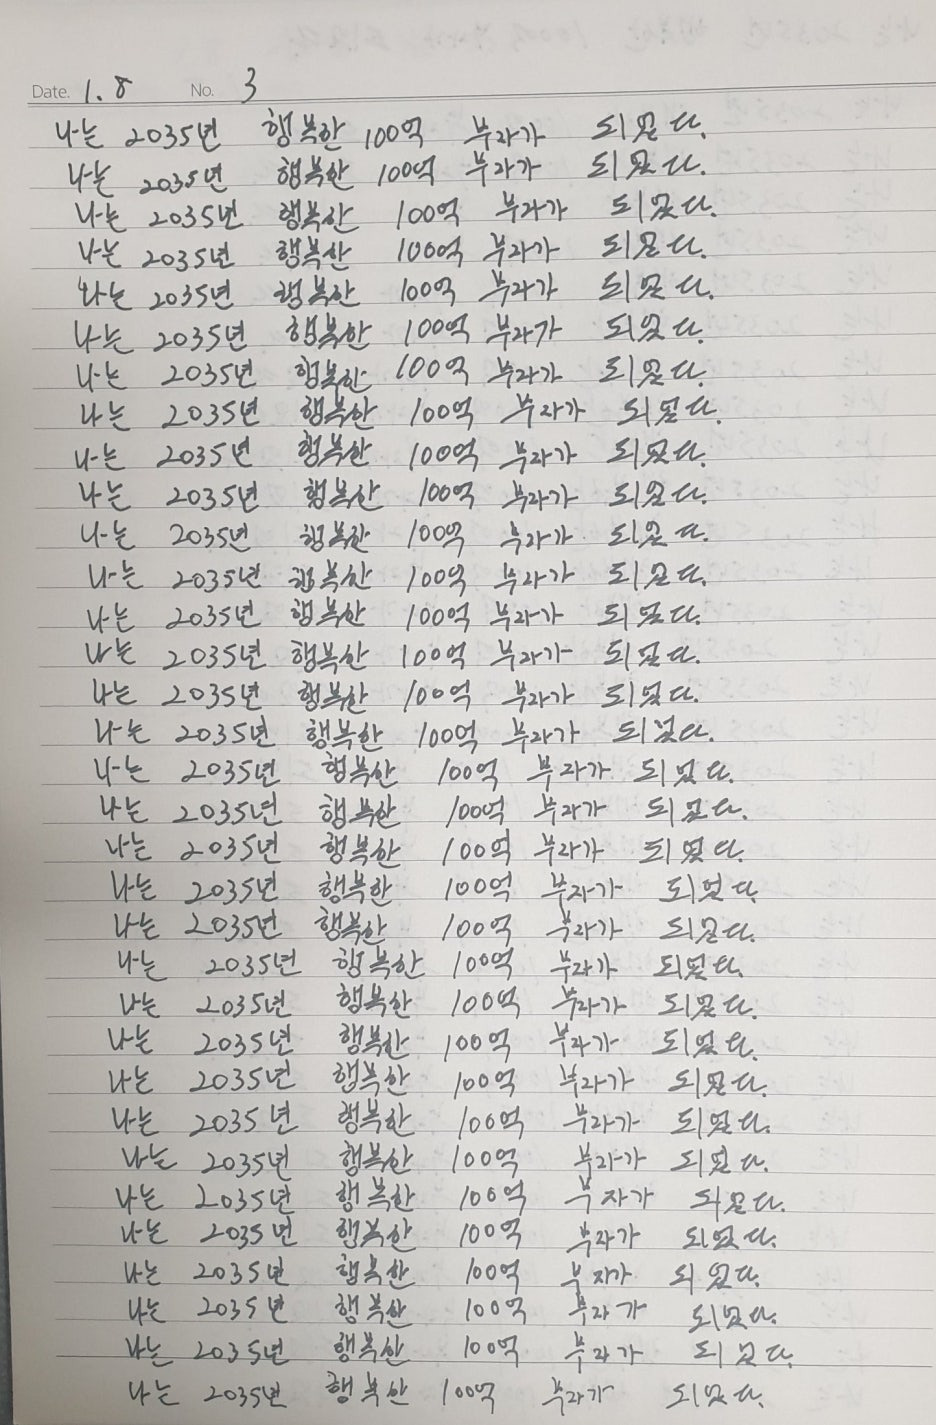 Date. 1. 8 No. 3
나는 2035년 행복한 100억 부자가 되었다.
나는 2035년 행복한 100억 부자가 되었다.
나는 2035년 행복한 100억 부자가 되었다.
나는 2035년 행복한 100억 부자가 되었다.
나는 2035년 행복한 100억 부자가 되었다.
나는 2035년 행복한 100억 부자가 되었다.
나는 2035년 행복한 100억 부자가 되었다.
나는 2035년 행복한 100억 부자가 되었다.
나는 2035년 행복한 100억 부자가 되었다.
나는 2035년 행복한 100억 부자가 되었다.
나는 2035년 행복한 100억 부자가 되었다.
나는 2035년 행복한 100억 부자가 되었다.
나는 2035년 행복한 100억 부자가 되었다.
나는 2035년 행복한 100억 부자가 되었다.
나는 2035년 행복한 100억 부자가 되었다.
나는 2035년 행복한 100억 부자가 되었다.
나는 2035년 행복한 100억 부자가 되었다.
나는 2035년 행복한 100억 부자가 되었다.
나는 2035년 행복한 100억 부자가 되었다.
나는 2035년 행복한 100억 부자가 되었다.
나는 2035년 행복한 100억 부자가 되었다.
나는 2035년 행복한 100억 부자가 되었다.
나는 2035년 행복한 100억 부자가 되었다.
나는 2035년 행복한 100억 부자가 되었다.
나는 2035년 행복한 100억 부자가 되었다.
나는 2035년 행복한 100억 부자가 되었다.
나는 2035년 행복한 100억 부자가 되었다.
나는 2035년 행복한 100억 부자가 되었다.
나는 2035년 행복한 100억 부자가 되었다.
나는 2035년 행복한 100억 부자가 되었다.
나는 2035년 행복한 100억 부자가 되었다.
나는 2035년 행복한 100억 부자가 되었다.
나는 2035년 행복한 100억 부자가 되었다.